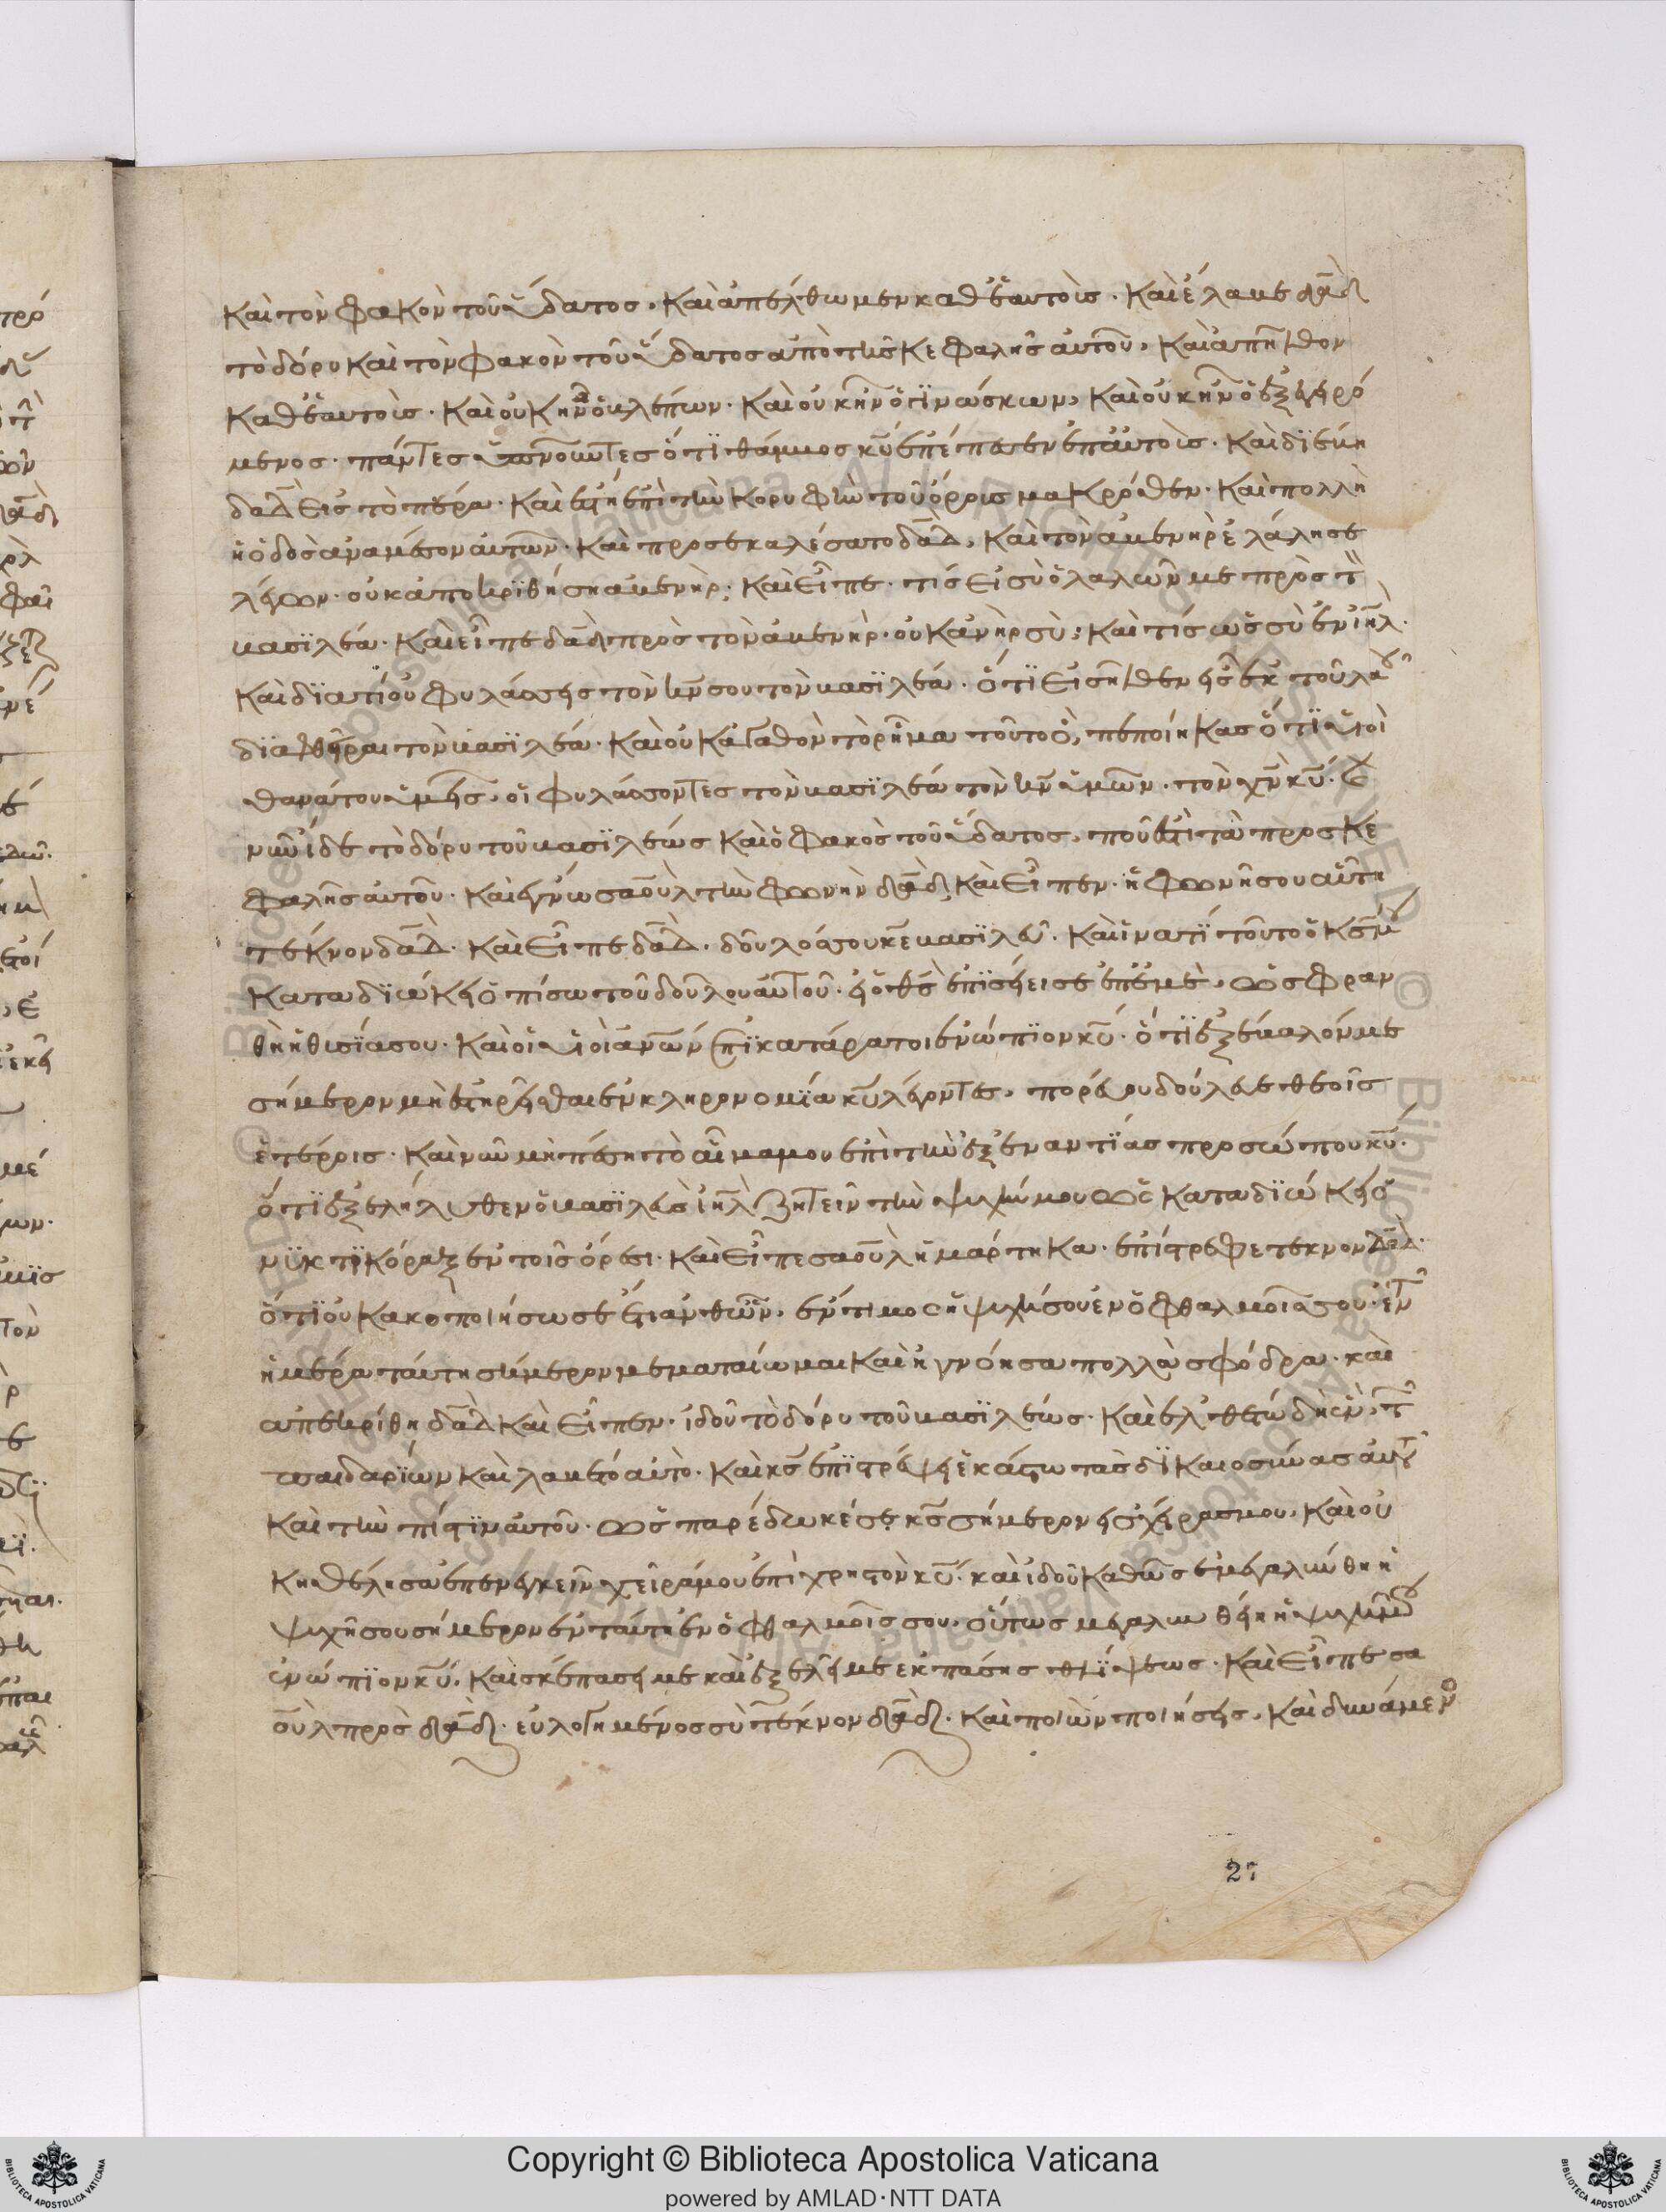 καὶ τὸν φακὸν τοῦ ὕδατος. καὶ ἀπέλθωμεν καθ ἑαυτοῖς. καὶ ἔλαβε δᾱδ
τὸ δόρυ καὶ τὸν φακὸν τοῦ ὕδατος ἀπὸ τῆς κεφαλῆς αὐτοῦ, καὶ ἀπῆλθον
καθ ἑαυτοῖς. καὶ οὐκ ἦν ὁ βλέπων. καὶ οὐκ ἦν ὁ γινώσκων, καὶ οὐκ ἦν ὁ ἐξεγειρό
μενος. πάντες ὑπνοῦντες ὅτι θάμβος κ̄υ ἐπέπεσεν ἐπ αὐτοῖς. καὶ διέβη
δᾱδ εἰς τὸ πέρα. καὶ ἔστη ἐπὶ τὴν κορυφὴν τοῦ ὄρους μακρόθεν. καὶ πολλὴ
ἡ ὁδὸς ἀναμέσον αὐτῶν. καὶ προσεκαλέσατο δᾱδ, καὶ τὸν ἀβενὴρ ἐλάλησε
λέγων. οὐκ ἀποκριθήση ἀβενὴρ; καὶ εἶπε. τίς εἶ σὺ ὁ λαλῶν με πρὸς τ
βασιλέα. καὶ εἶπε δᾱδ πρὸς τὸν ἀβενὴρ. οὐκ ἀνὴρ σύ; καὶ τίς ὡς σὺ ἐν ῑηλ.
καὶ διατί οὐ φυλάσσεις τὸν κ̄ν σου τὸν βασιλέα. ὅτι εἰσῆλθεν εἷς ἐκ τοῦ λαοῦ
διαφθεῖραι τὸν βασιλέα. καὶ οὐκ ἀγαθὸν τὸ ῥῆμα τοῦτο ὃ, πεποίηκας ὅτι υἱοὶ
θανάτου ὑμεῖς, οἱ φυλάσσοντες τὸν βασιλέα τὸν κ̄ν ὑμῶν. τὸν χ̄ν κ̄υ. καὶ
νῦν ἴδε τὸ δόρυ τοῦ βασιλέως καὶ ὁ φακὸς τοῦ ὕδατος, ποῦ ἐστὶ τὰ προσκε
φαλῆς αὐτοῦ. καὶ ἔγνω σαοὺλ τὴν φωνὴν δᾱδ, καὶ εἶπεν. ἡ φωνή σου αὕτη
τέκνον δᾱδ. καὶ εἶπε δᾱδ. δοῦλός σου κ̄ε βασιλεῦ. καὶ ἱνατί τοῦτο ὁ κ̄ς μου
καταδιώκει ὀπίσω τοῦ δούλου αὐτοῦ. εἰ ὁ θ̄ς ἐπισείει σε ἐπ ἐμὲ, ὀσφραν
θὴ ἡ θυσία σου. καὶ οἱ υἱοὶ ἀν̄ων ἐπικατάρατοι ἐνώπιον κ̄υ. ὅτι ἐξέβαλόν με
σήμερον μὴ ἐστηρεῖσθαι ἐν κληρονομία κ̄υ λέγοντες, πορεύου δούλευε θεοῖς
ἑτέροις. καὶ νῦν μὴ πέση τὸ αἷμα μου ἐπὶ τὴν ἐξεναντίας προσώπου κ̄υ.
ὅτι ἐξελήλυθεν ὁ βασιλεὺς ῑηλ ζητεῖν τὴν ψυχήν μου ὡς καταδιώκει ὁ
νυκτικόραξ ἐν τοῖς ὄρεσι. καὶ εἶπε σαοὺλ ἡμάρτηκα. ἐπίστρεφε τέκνον δᾱδ.
ὅτι οὐ κακοποιήσω σε ἔτι ἀνθῶν, ἔντιμος ἡ ψυχή σου ἐν ὀφθαλμοῖς σου. ἐν τῆ
ἡμέρα ταύτη σήμερον μεματαίωμαι καὶ ἠγνόησα πολλὰ σφόδρα. καὶ
ἀπεκρίθη δᾱδ καὶ εἶπεν. ἰδοῦ τὸ δόρυ τοῦ βασιλέως. καὶ ἐλθέτω δὴ εἷς τῶν
παιδαρίων καὶ λαβέτω αὐτὸ. καὶ κ̄ς ἐπιστρέψει ἑκάστω τὰς δικαιοσύνας αὐτοῦ
καὶ τὴν πίστιν αὐτοῦ. ὡς παρέδωκέ σε κ̄ς σήμερον εἰς χεῖρας μου, καὶ οὐ
κ ἠθέλησα ἐπενεγκεῖν χεῖρά μου ἐπὶ χρηστὸν κ̄υ. καὶ ἰδοῦ καθὼς ἐμεγαλύνθη ἡ
ψυχή σου σήμερον ἐν ταύτη ἐν ὀφθαλμοῖς σου, οὕτως μεγαλυνθείη ἡ ψυχή μου
ἐνώπιον κ̄υ, καὶ σκεπάσει με καὶ ἐξελεῖ με ἐκ πάσης θλίψεως. καὶ εἶπε σα
οὺλ πρὸς δᾱδ. εὐλογημένος σὺ τέκνον δᾱδ. καὶ ποιῶν ποιήσεις, καὶ δυνάμενος
27
© Biblioteca Apostolica Vaticana
Copyright © Biblioteca Apostolica Vaticana
powered by AMLAD·NTT DATA